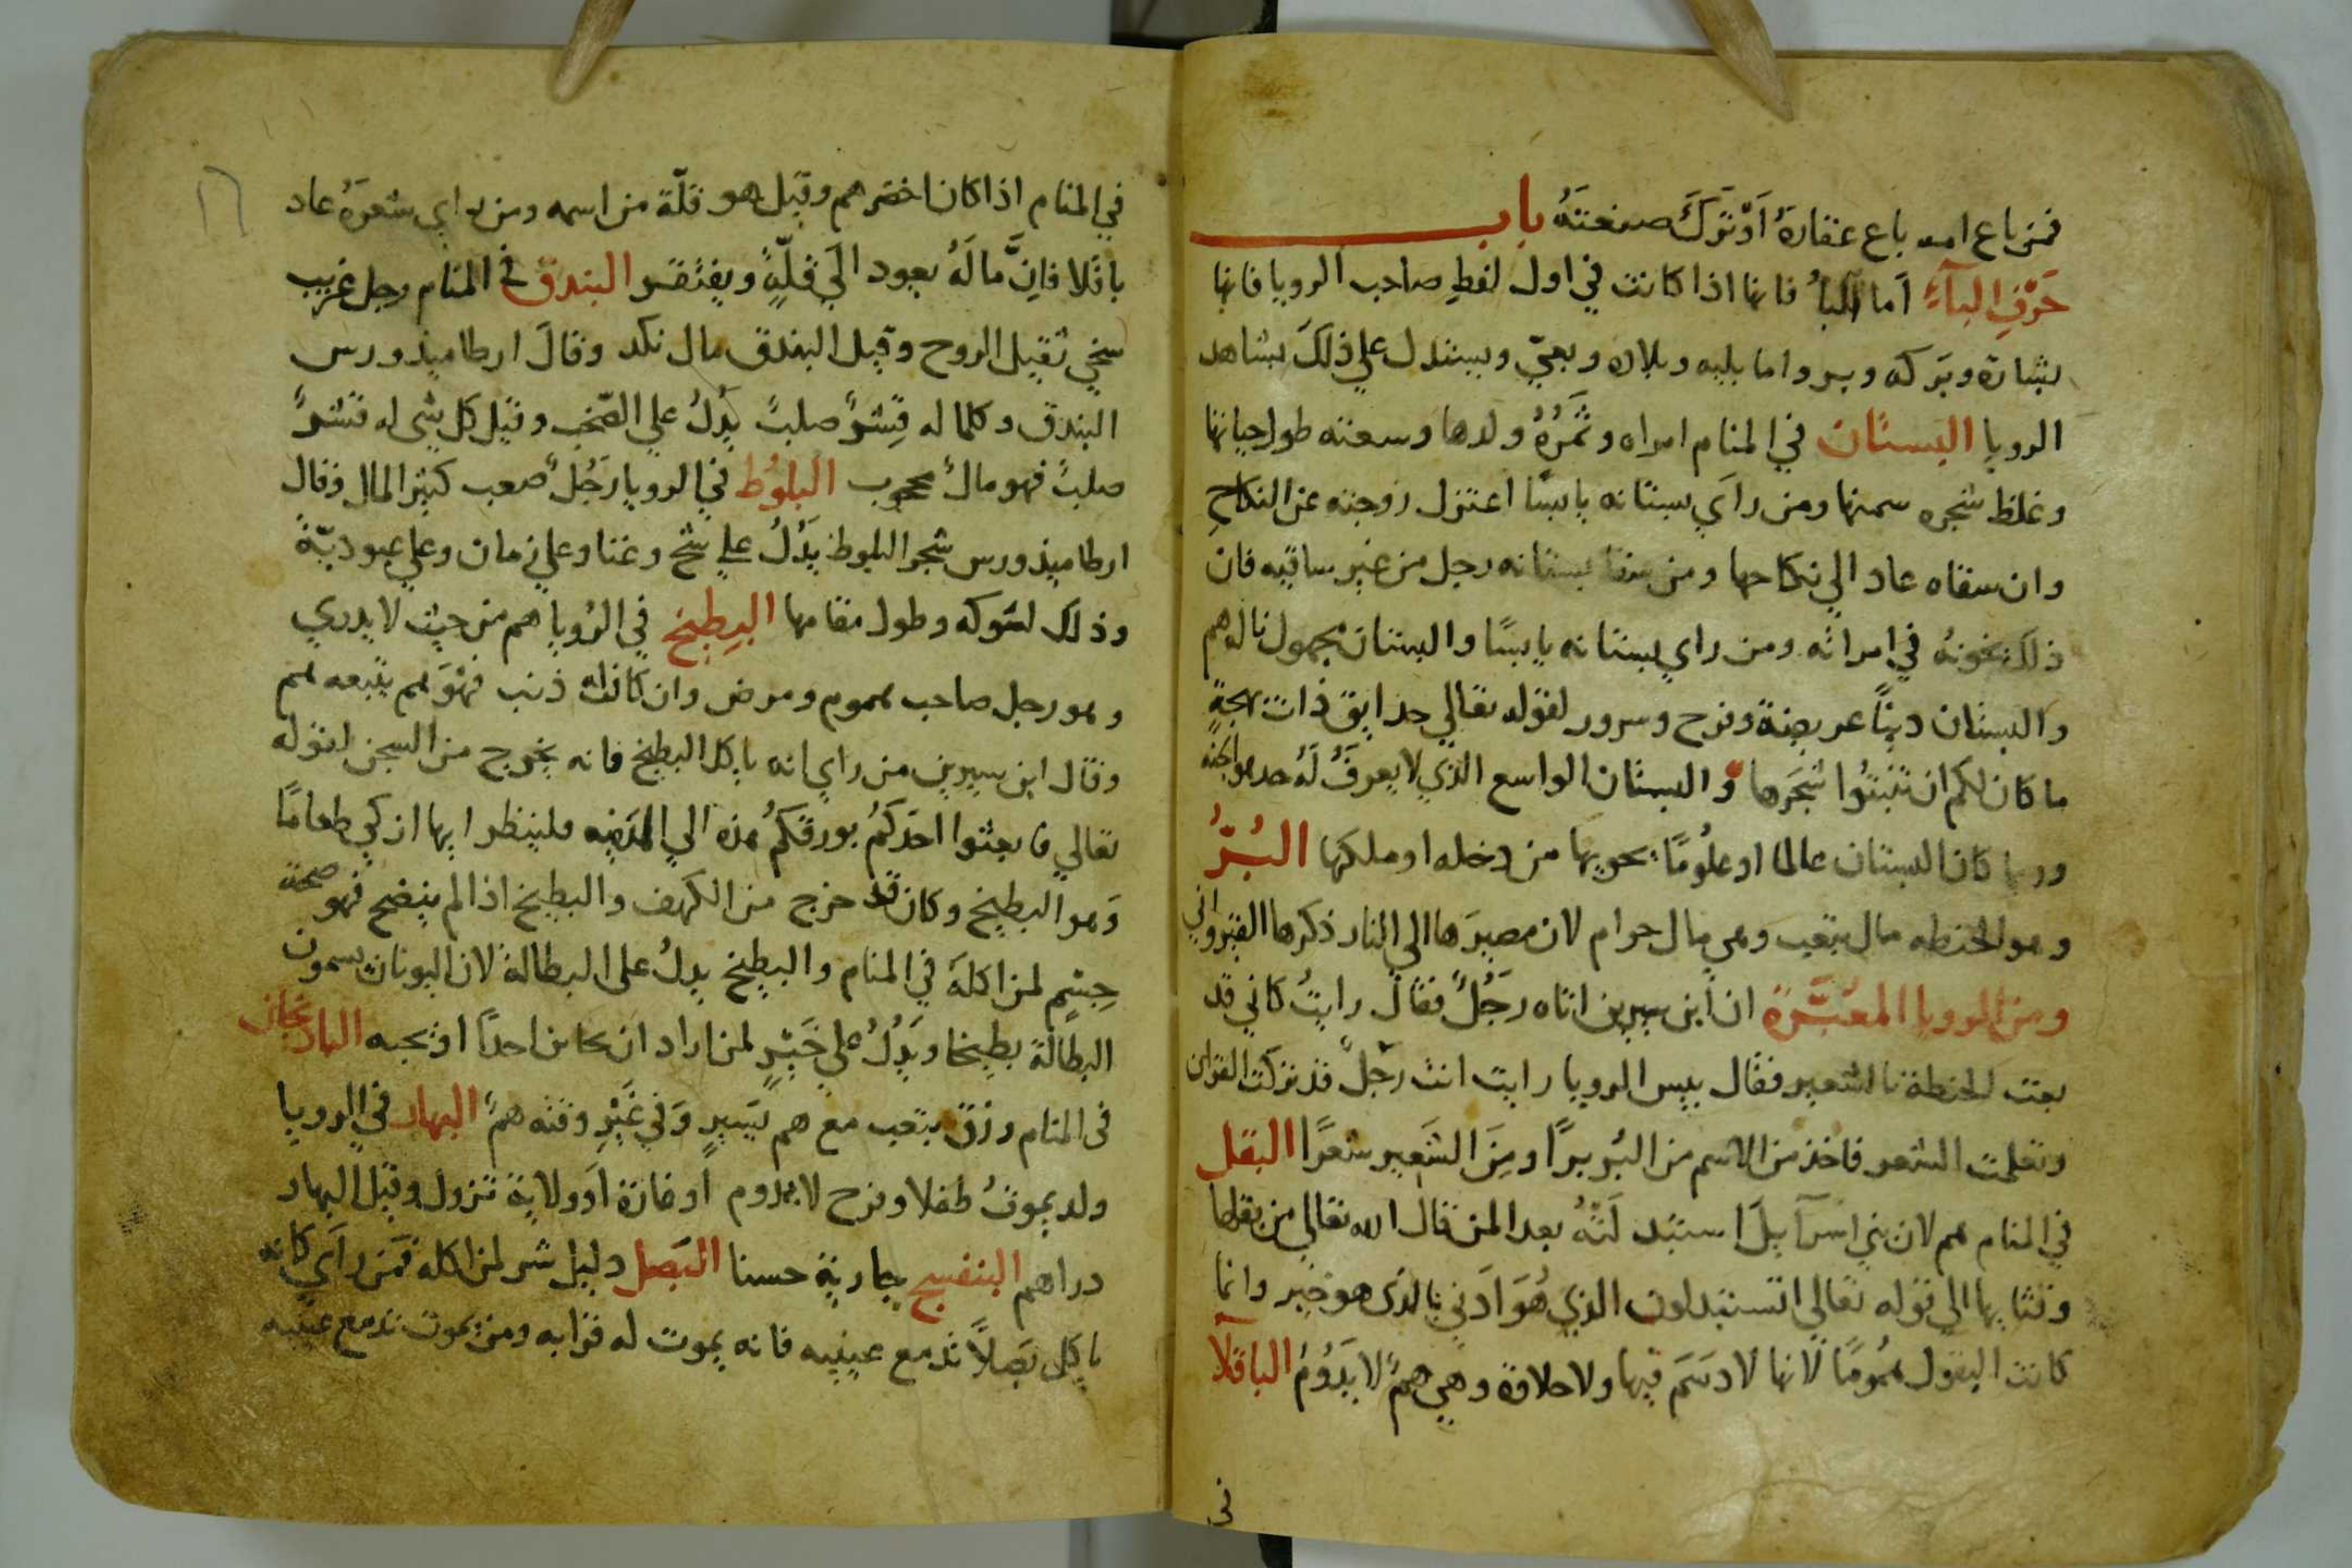 فمن باع امه باع عقاره اَوْ تَرَكَ صنعتَهُ باب
حَرْفِ البآءِ اَما البآُ فانها اذا كانت في اول لفظِ صاحب الرويا فانها
بشارة وبَركه وبر واما بليه وبلاده وبعيّ ويستدل علي ذلكَ بشاهد
الرويا البستان في المنام امراه وثَمَرُهُ ولدها وسعته طول حياتها
وغلظ شجره سمنها ومن رايَ بستانه يابسًا اعتزل زوجته عن النكاحِ
وان سقاه عاد الي نكاحها ومن سقا بستانه رجل من غير ساقيه فان
ذلك يخونهُ في امراته ومن راي بستانه يابسًا والبستان مجهول ناله هم
والبستان دنيًا عريضة وفرح وسرور لقوله تعالي حدايق ذات بهجةٍ
ما كان لكم ان تنبتُوا شجَرها والبستان الواسع الذي لا يعرفُ لَهُ حد هو الجنه
وربما كان البستان عالما او علُومًا يحويها من دخله او ملكها البُرُّ
وهو الحنطه مال بتعب وهي مال حرام لان مصيرَها الي النار ذكرها القيرواني
ومن الرويا المعَبَّرة ان ابن سيرين اتاه رجُلٌ فقال رايتُ كاني قد
بعت الحنطة بالشعير فقال بيس الرويا رايت انت رجلٌ قد تركت القران
وتعلمت الشعر فاخذ من الاسم من البُر برًا ومِنَ الشَعير شعرًا البقل
في المنام هم لان بني اسرآيلَ استبدلَتهُ بعد المن قال الله تعالي من بقلها
وقثايها الي قوله تعالي اتستبدلون الذي هُوَ اَدني بالذي هو خير وانما
كانت البقول همُومًا لانها لا دسَمَ فيها ولا حلاوة وهي همٌ لا يَدوُمُ الباقلآ
في
في المنام اذا كان اخضر هم وقيل هو قلّة من اسمه ومن راي شعرَهُ عاد
باقلا فانَّ مالَهُ يعود الَي قلّةٍ ويفتقر البندق في المنام رجل غريب
سخي ثقيل الروح وقيل البندق مال نكد وقالَ ارطاميذورس
البندق وكلما له قِشرٌ صلبٌ يدلُ علي الصّخب وقيل كل شي له قشرٌ
صلبٌ فهو مالٌ محجوب البلوُط في الرويا رَجُلٌ صعب كثير المال وقال
ارطاميذورس شجر البلوط يدُلُ علي شح وغنا وعلي زمان وعلي عبوديّة
وذلك لشوكه وطول مقامها البِطيخ في الرُويا هم من حيث لا يدري
وهو رجل صاحب هموم ومرض وان كان له ذنب فهوَ هم يتبعه هم
وقال ابن سيرين من راي انه ياكل البطيخ فانه يخرج من السجن لقوله
تعالي فابعثوا احدَكمُ بورقكمُ هذه الي المدَينه فلينظر ايها ازكي طعامًا
وَهو البطيخ وكان قد خرج من الكهف والبطيخ اذا لم ينضج فهو صحة
جسْمٍ لمن اكلهَ في المنام والبطيخ يدلُ على البطالة لان اليونان يسمون
البطالة بطيخا ويَدُلُ علي خَيْرٍ لمن اراد ان يحا من احدًا او يحبه الباذنجان
في المنام رزق بتعب مع هم يسَيرٍ وَفي غَيْرِ وقته همٌ البهار في الرويا
ولد يموتُ طفلا وفرح لا يدوم اَو غارة اَو ولاية تزول وقيل البهار
دراهم البنفسج جارية حسنا البَصل دليل شر لمن اكله فمَن راَي كانه
ياكل بَصلاً تدمع عينيه فانه يموت له قرابه ومن يموت تدمع عينيه